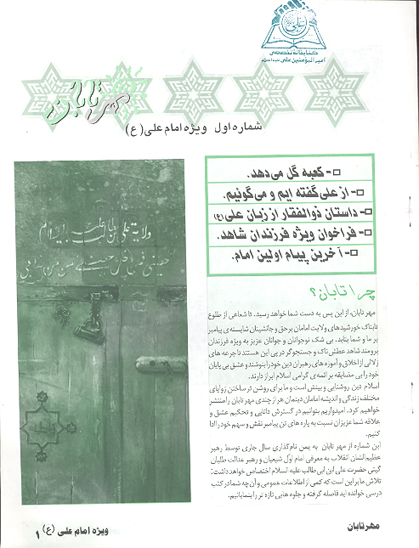 کتابخانه تخصصی
امیرالمومنین علی علیه السلام
مهر تابان
شماره اول ویژه امام علی (ع)
- کعبه گل می‌دهد.
- از علی گفته ایم و می‌گوئیم.
- داستان ذوالفقار از زبان علی (ع)
- فراخوان ویژه فرزندان شاهد.
- آخرین پیام اولین امام.
چرا تابان؟
مهر تابان، از این پس به دست شما خواهد رسید. تا شعاعی از طلوع
تابناک خورشیدهای ولایت امامان برحق و جانشینان شایسته‌ی پیامبر
بر ما و شما بتابد. بی شک نوجوانان و جوانان عزیز به ویژه فرزندان
برومند شاهد عطش ناک و جستجوگر در پی این هستند تا جرعه های
زلالی از اخلاق و آموزه های رهبران دین خود را بنوشند و عشق بی پایان
خود را بی مضایقه بر ائمه‌ی گرامی اسلام ابراز دارند.
اسلام دین روشنایی و بینش است و ما برای روشن تر ساختن زوایای
مختلف زندگی و اندیشه امامان دینمان هر از چندی مهر تابان را منتشر
خواهیم کرد. امیدواریم بتوانیم در گسترش دانایی و تحکیم عشق و
علاقه شما عزیزان نسبت به پاره های تن پیامبر نقش و سهم خود را ادا
کنیم.
این شماره از مهر تابان به یمن نام‌گذاری سال جاری توسط رهبر
عظیم الشان انقلاب به معرفی امام اول شیعیان و رهبر عدالت طلبان
گیتی حضرت علی ابن ابی طالب علیه السلام اختصاص خواهد داشت؛
تلاش ما بر این است که کمی از اطلاعات عمومی و آن چه شما در کتب
درسی خوانده اید فاصله گرفته و جلوه هایی تازه تر را بنمایانیم.
مهر تابان
ویژه امام علی (ع) ۱